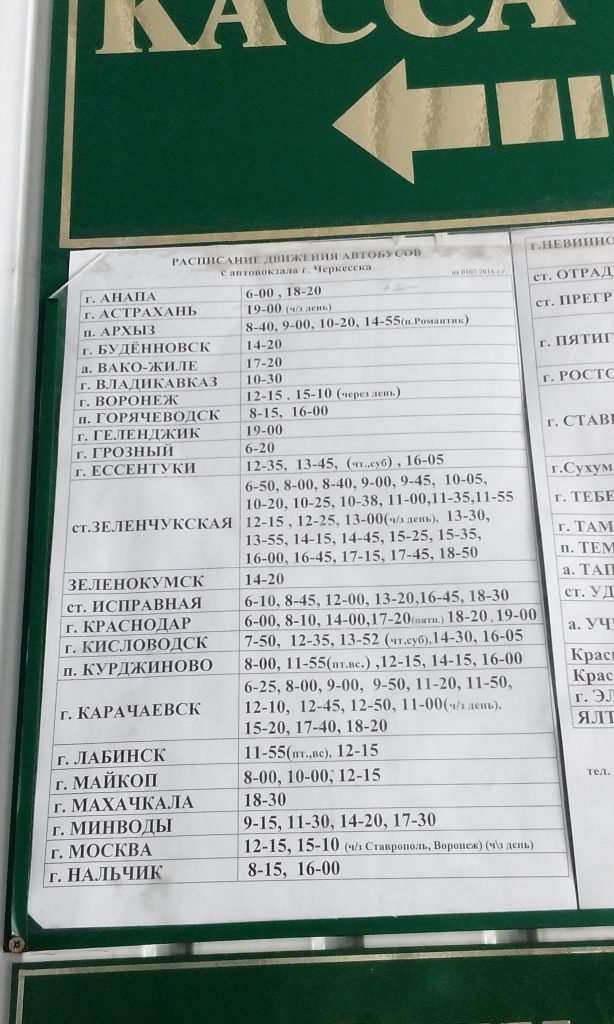 КАССА
РАСПИСАНИЕ ДВИЖЕНИЯ АВТОБУСОВ
с автовокзала г. Черкесска
на 0107.2016 г.
г. АНАПА 6-00 , 18-20
г. АСТРАХАНЬ 19-00 (ч/з день)
п. АРХЫЗ 8-40, 9-00, 10-20, 14-55(п.Романтик)
г. БУДЁННОВСК 14-20
а. ВАКО-ЖИЛЕ 17-20
г. ВЛАДИКАВКАЗ 10-30
г. ВОРОНЕЖ 12-15 . 15-10 (через день)
п. ГОРЯЧЕВОДСК 8-15, 16-00
г. ГЕЛЕНДЖИК 19-00
г. ГРОЗНЫЙ 6-20
г. ЕССЕНТУКИ 12-35, 13-45, (чт.,суб) , 16-05
ст.ЗЕЛЕНЧУКСКАЯ 6-50, 8-00, 8-40, 9-00, 9-45, 10-05,
10-20, 10-25, 10-38, 11-00,11-35,11-55
12-15 , 12-25, 13-00(ч/з день), 13-30,
13-55, 14-15, 14-45, 15-25, 15-35,
16-00, 16-45, 17-15, 17-45, 18-50
ЗЕЛЕНОКУМСК 14-20
ст. ИСПРАВНАЯ 6-10, 8-45, 12-00, 13-20,16-45, 18-30
г. КРАСНОДАР 6-00, 8-10, 14-00,17-20(пятн.) 18-20 , 19-00
г. КИСЛОВОДСК 7-50, 12-35, 13-52 (чт,суб),14-30, 16-05
п. КУРДЖИНОВО 8-00, 11-55(пт.вс.) ,12-15, 14-15, 16-00
г. КАРАЧАЕВСК 6-25, 8-00, 9-00, 9-50, 11-20, 11-50,
12-10, 12-45, 12-50, 11-00(ч/з день),
15-20, 17-40, 18-20
г. ЛАБИНСК 11-55(пт.,вс), 12-15
г. МАЙКОП 8-00, 10-00, 12-15
г. МАХАЧКАЛА 18-30
г. МИНВОДЫ 9-15, 11-30, 14-20, 17-30
г. МОСКВА 12-15, 15-10 (ч/з Ставрополь, Воронеж) (ч\з день)
г. НАЛЬЧИК 8-15, 16-00
г.НЕВИННО
ст. ОТРАД
ст. ПРЕГР
г. ПЯТИГ
г. РОСТО
г. СТАВ
г.Сухум
г. ТЕБЕ
г. ТАМ
п. ТЕМ
а. ТАП
ст. УД
а. УЧ
Красн
Крас
г. ЭЛ
ЯЛТ
тел.